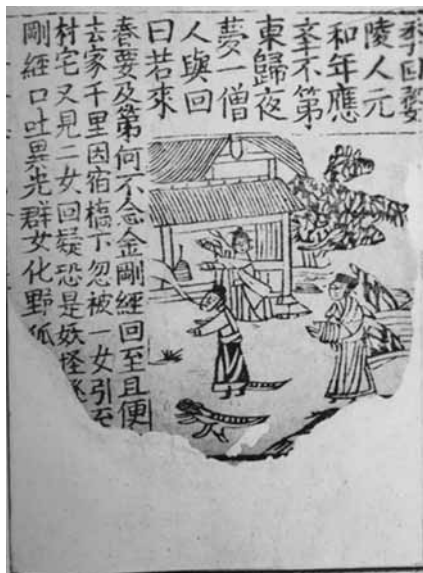 李回婺
陵人元
和年應
不第
東歸夜
夢一僧
人與回
曰若來
春要及第何不念金剛經回至且便
去家千里因宿橋下忽被一女引至
村宅又見二女回疑恐是妖怪遂
剛經口吐異光群女化野狐